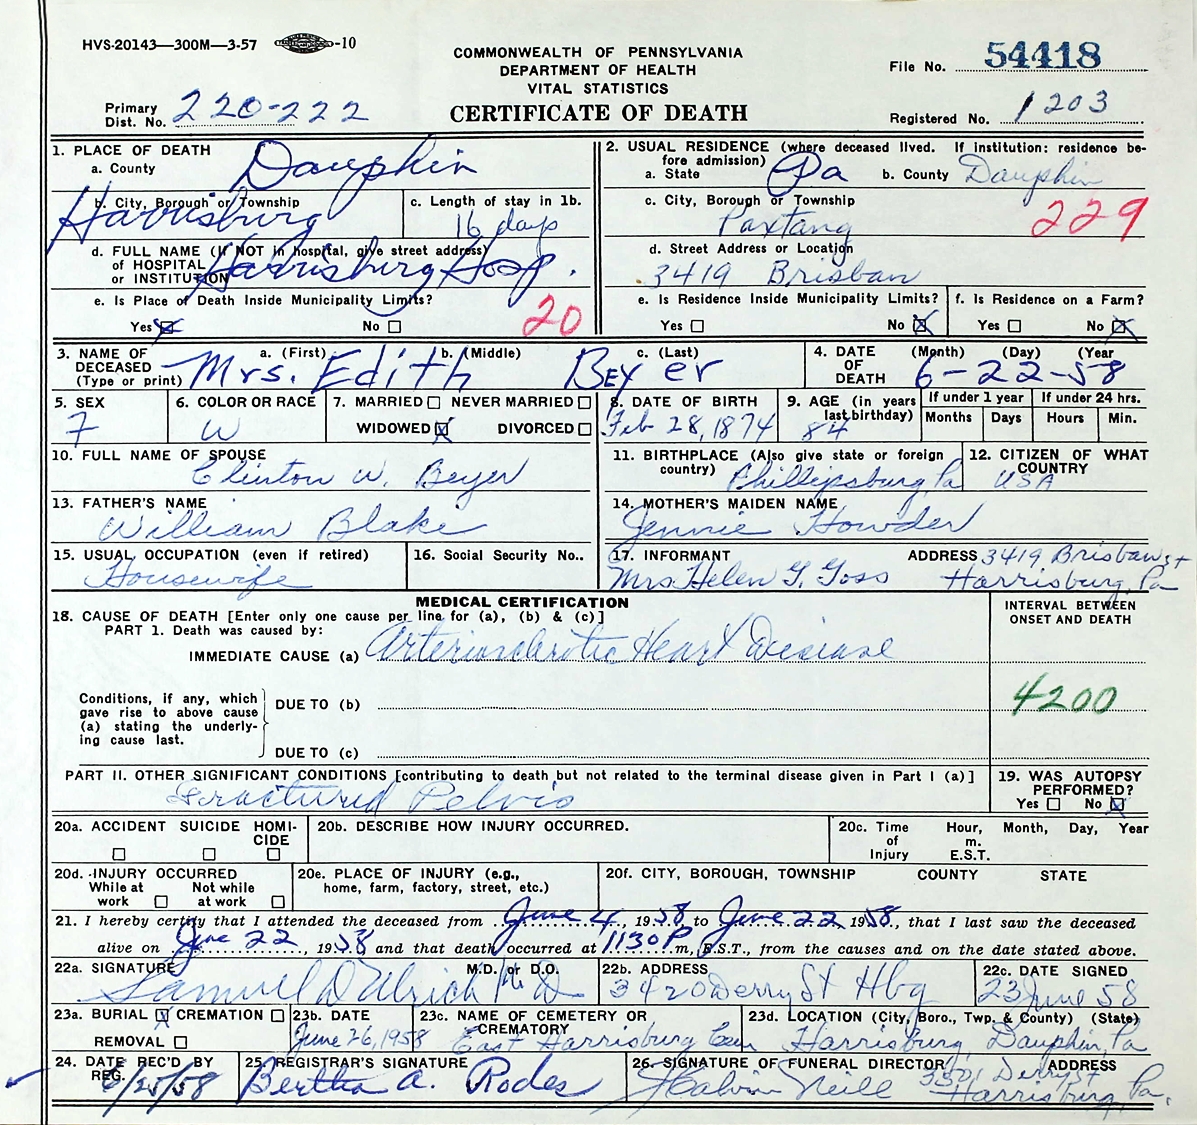 HVS-20143—300M—3-57 -10
COMMONWEALTH OF PENNSYLVANIA
DEPARTMENT OF HEALTH
VITAL STATISTICS
CERTIFICATE OF DEATH
File No. 54418
Primary Dist. No. 220-222
Registered No. 1203
1. PLACE OF DEATH
a. County Dauphin
b. City, Borough or Township Harrisburg
c. Length of stay in 1b. 16 days
d. FULL NAME (If NOT in hospital, give street address) of HOSPITAL or INSTITUTION Harrisburg Hosp.
e. Is Place of Death Inside Municipality Limits?
Yes ☒ No ☐ 20
2. USUAL RESIDENCE (where deceased lived. If institution: residence before admission)
a. State Pa b. County Dauphin
c. City, Borough or Township Paxtang 229
d. Street Address or Location
3419 Brisban
e. Is Residence Inside Municipality Limits? Yes ☐ No ☒
f. Is Residence on a Farm? Yes ☐ No ☒
3. NAME OF DECEASED (Type or print) a. (First) b. (Middle) c. (Last)
Mrs. Edith Beyer
4. DATE OF DEATH (Month) (Day) (Year
6-22-58
5. SEX F
6. COLOR OR RACE W
7. MARRIED ☐ NEVER MARRIED ☐
WIDOWED ☒ DIVORCED ☐
8. DATE OF BIRTH Feb 28, 1874
9. AGE (in years last birthday) 84
If under 1 year Months Days
If under 24 hrs. Hours Min.
10. FULL NAME OF SPOUSE
Clinton W. Beyer
11. BIRTHPLACE (Also give state or foreign country) Phillipsburg, Pa
12. CITIZEN OF WHAT COUNTRY USA
13. FATHER'S NAME
William Blake
14. MOTHER'S MAIDEN NAME
Jennie Howder
15. USUAL OCCUPATION (even if retired)
Housewife
16. Social Security No..
17. INFORMANT Mrs. Helen G. Goss
ADDRESS 3419 Brisban St Harrisburg, Pa
MEDICAL CERTIFICATION
18. CAUSE OF DEATH [Enter only one cause per line for (a), (b) & (c)]
PART 1. Death was caused by:
IMMEDIATE CAUSE (a) Arteriosclerotic Heart Disease
INTERVAL BETWEEN ONSET AND DEATH
Conditions, if any, which gave rise to above cause (a) stating the underlying cause last.
DUE TO (b)
4200
DUE TO (c)
PART II. OTHER SIGNIFICANT CONDITIONS [contributing to death but not related to the terminal disease given in Part I (a)]
Fractured Pelvis
19. WAS AUTOPSY PERFORMED?
Yes ☐ No ☒
20a. ACCIDENT SUICIDE HOMICIDE
☐ ☐ ☐
20b. DESCRIBE HOW INJURY OCCURRED.
20c. Time of Injury Hour, Month, Day, Year
m. E.S.T.
20d. INJURY OCCURRED
While at work ☐ Not while at work ☐
20e. PLACE OF INJURY (e.g., home, farm, factory, street, etc.)
20f. CITY, BOROUGH, TOWNSHIP COUNTY STATE
21. I hereby certify that I attended the deceased from June 4, 1958 to June 22 1958, that I last saw the deceased
alive on June 22, 1958 and that death occurred at 1130P m, E.S.T., from the causes and on the date stated above.
22a. SIGNATURE M.D. or D.O.
Samuel D Ulrich M D
22b. ADDRESS
3420 Derry St Hbg
22c. DATE SIGNED
23 June 58
23a. BURIAL ☒ CREMATION ☐
REMOVAL ☐
23b. DATE
June 26, 1958
23c. NAME OF CEMETERY OR CREMATORY
East Harrisburg Cem
23d. LOCATION (City, Boro., Twp. & County) (State)
Harrisburg, Dauphin, Pa
24. DATE REC'D BY REG. 6/25/58
25. REGISTRAR'S SIGNATURE
Bertha A. Rodes
26. SIGNATURE OF FUNERAL DIRECTOR ADDRESS
Calvin Neill 3501 Derry St Harrisburg, Pa.